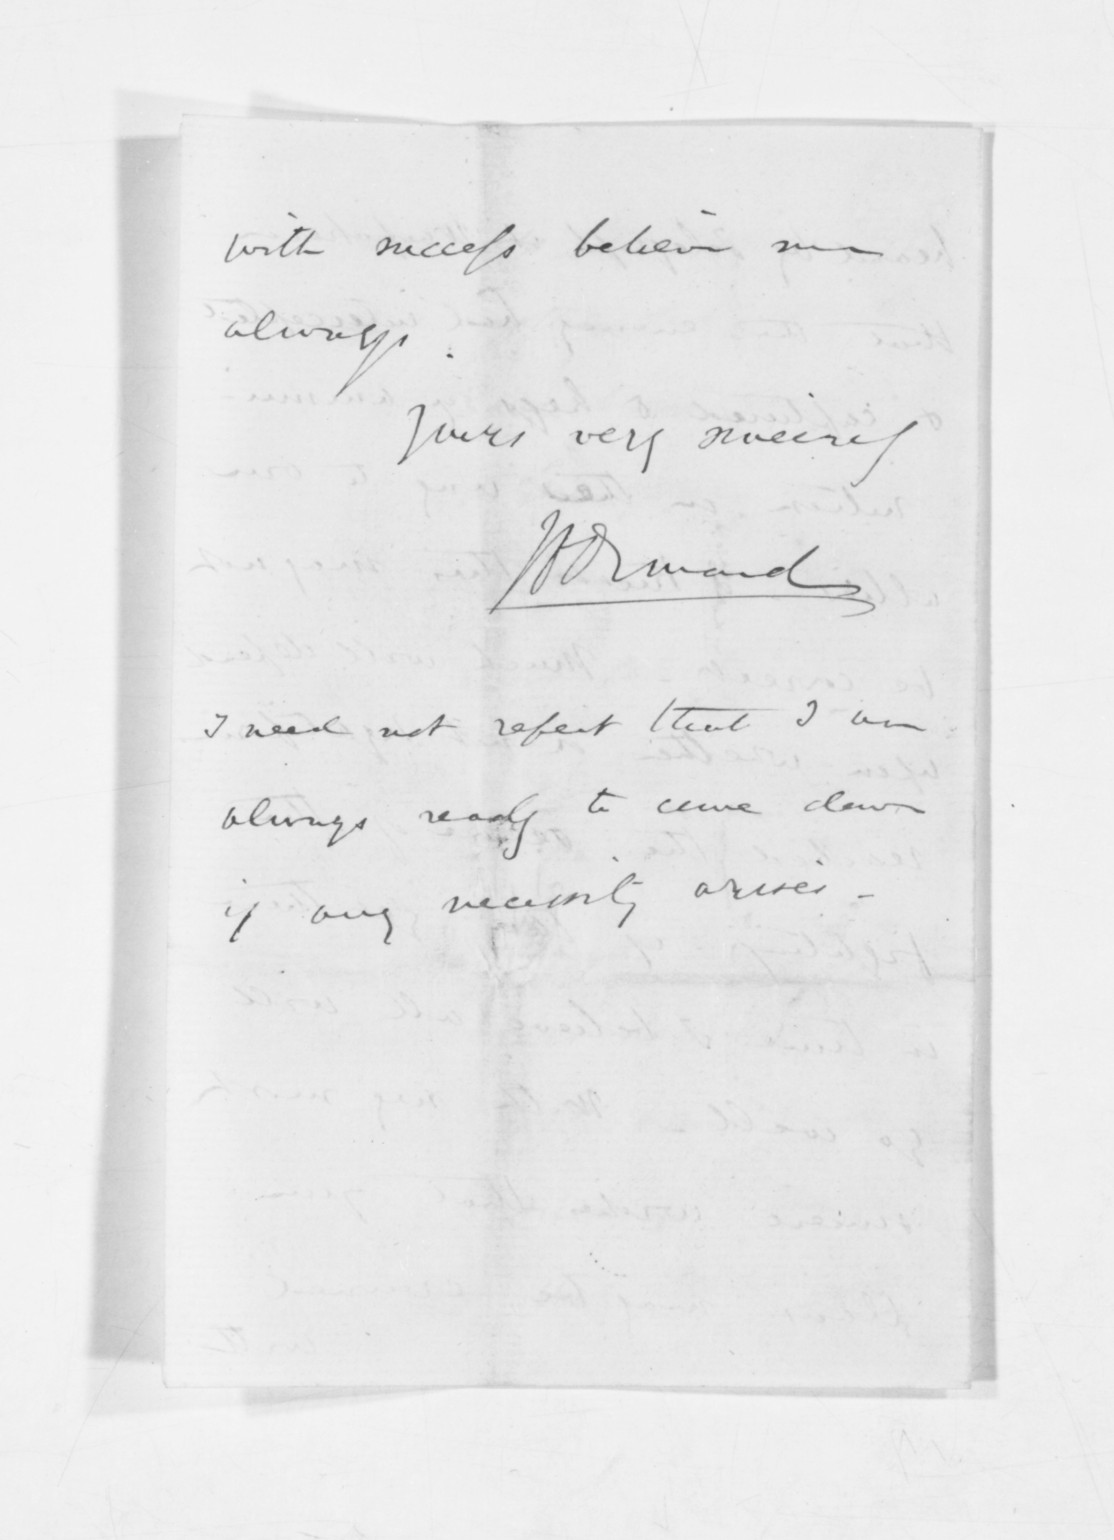 with success believe me
always.
Yours very sincerely
J D Ormond
I need not repeat that I am
always ready to come down
if any necessity arises -